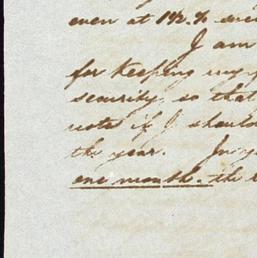 even at 1½ %
I am
for keeping my
security, so that
note if I should
the year.
one month. the